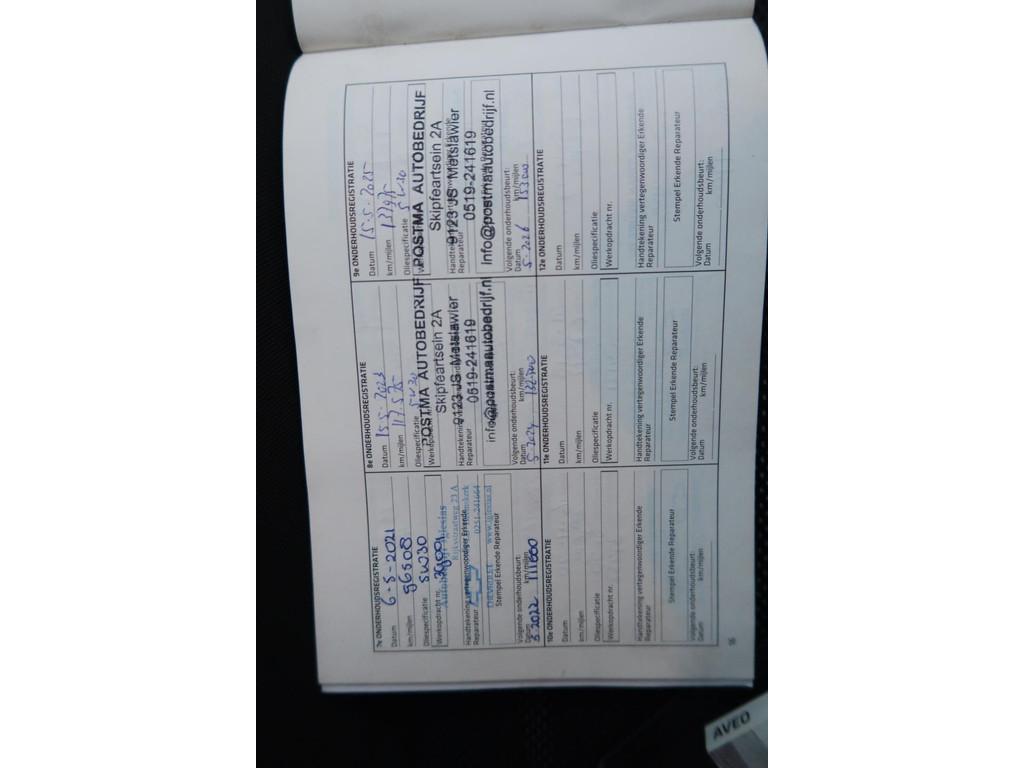 7e ONDERHOUDSREGISTRATIE
Datum 6-5-2021
km/mijlen 96508
Oliespecificatie 5W30
Werkopdracht nr.
Autobedrijf Iglesias
Rijksstraatweg 23 A
Handtekening vertegenwoordiger Erkende
Reparateur
0251-241664
CHEVROLET www.iglesias.nl
Stempel Erkende Reparateur
Volgende onderhoudsbeurt:
Datum km/mijlen
5-2022 111600
8e ONDERHOUDSREGISTRATIE
Datum 15-5-2023
km/mijlen 117.575
Oliespecificatie 5W30
POSTMA AUTOBEDRIJF
Werkopdracht
Skipfeartsein 2A
9123 JS Metslawier
Handtekening
Reparateur 0519-241619
info@postmaautobedrijf.nl
Volgende onderhoudsbeurt:
Datum km/mijlen
5-2024 132500
9e ONDERHOUDSREGISTRATIE
Datum 15-5-2025
km/mijlen
Oliespecificatie 5W30
POSTMA AUTOBEDRIJF
Skipfeartsein 2A
9123 JS Metslawier
Handtekening
Reparateur 0519-241619
info@postmaautobedrijf.nl
Volgende onderhoudsbeurt:
Datum km/mijlen
5-2026 153000
10e ONDERHOUDSREGISTRATIE
Datum
km/mijlen
Oliespecificatie
Werkopdracht nr.
Handtekening vertegenwoordiger Erkende
Reparateur
Stempel Erkende Reparateur
Volgende onderhoudsbeurt:
Datum km/mijlen
11e ONDERHOUDSREGISTRATIE
Datum
km/mijlen
Oliespecificatie
Werkopdracht nr.
Handtekening vertegenwoordiger Erkende
Reparateur
Stempel Erkende Reparateur
Volgende onderhoudsbeurt:
Datum km/mijlen
12e ONDERHOUDSREGISTRATIE
Datum
km/mijlen
Oliespecificatie
Werkopdracht nr.
Handtekening vertegenwoordiger Erkende
Reparateur
Stempel Erkende Reparateur
Volgende onderhoudsbeurt:
Datum km/mijlen
16
AVEO